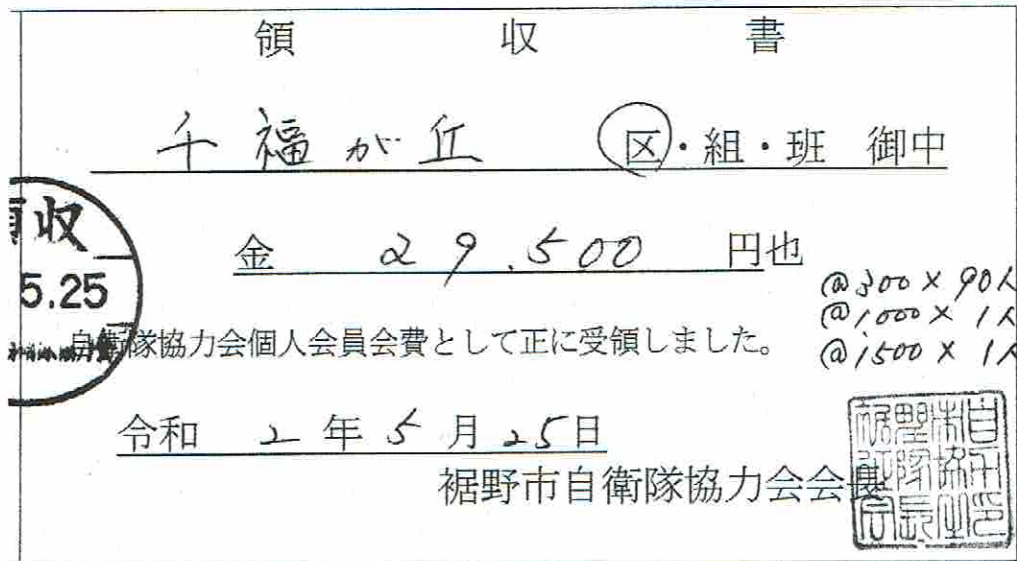 領収書
千福が丘 区・組・班 御中
収
5.25
金 29,500 円也
@300×90人
@1,000×1人
@1500×1人
自衛隊協力会個人会員会費として正に受領しました。
令和 2年5月25日
裾野市自衛隊協力会会長